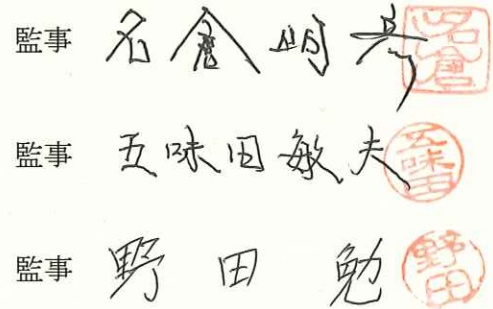 監事 名倉明彦 名倉
監事 五味田敏夫 五味田
監事 野田勉 野田